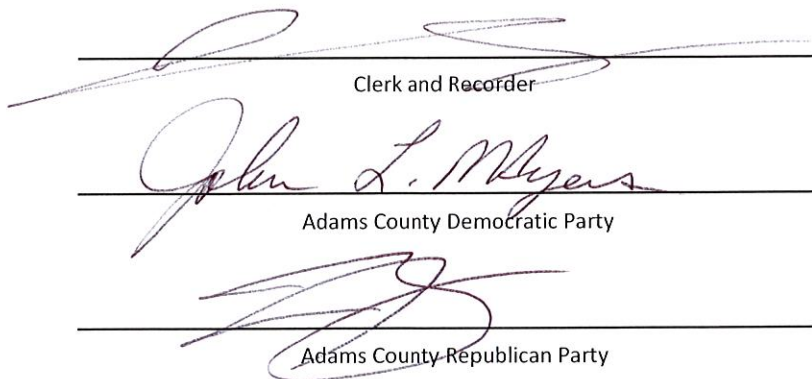 Clerk and Recorder
John L. Myers
Adams County Democratic Party
Adams County Republican Party